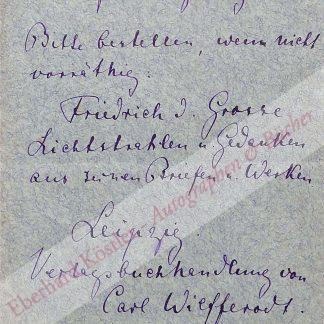 Bitte bestellen, wenn nicht
vorräthig:
Friedrich d. Grosse
Lichtstrahlen u. Gedanken
aus seinen Briefen u. Werken
Leipzig.
Verlagsbuchhandlung von
Carl Wilfferodt.
Eberhard Köstler Autographen & Bücher